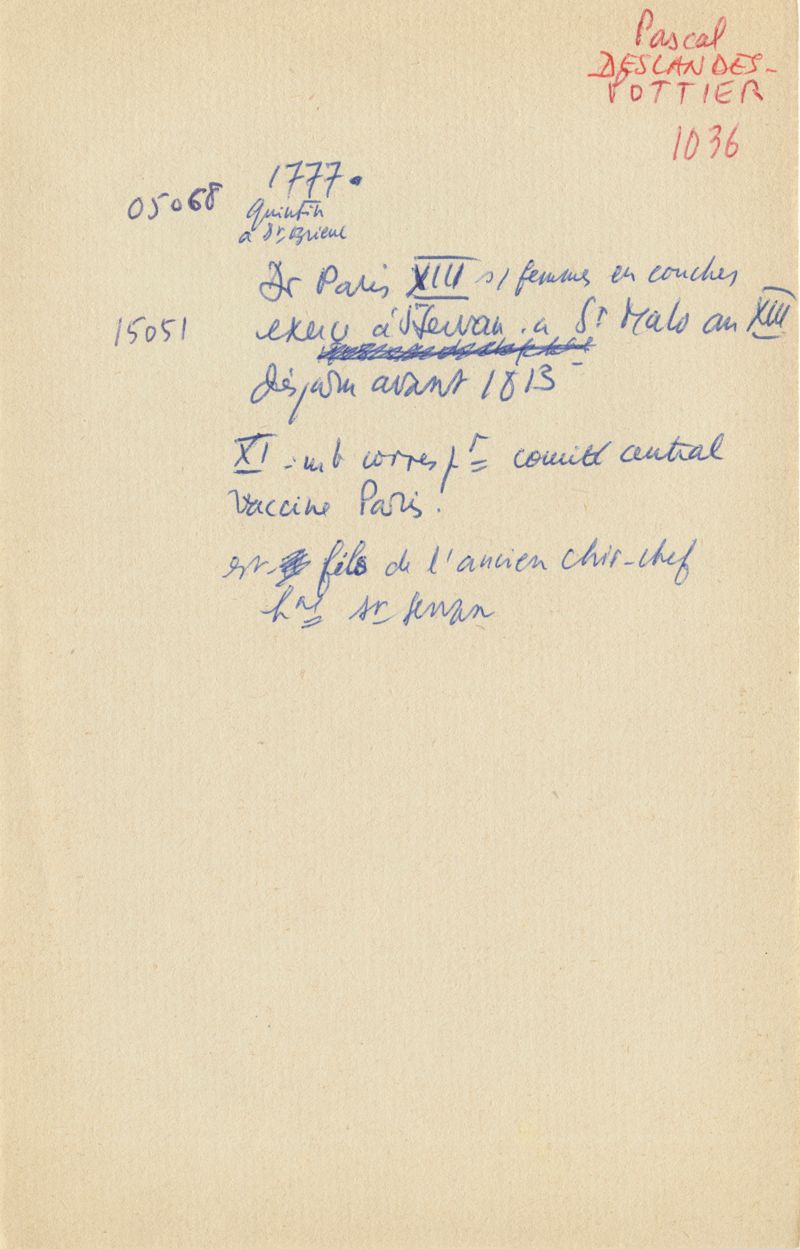 Pascal
DESLANDES-
POTTIER
1036
05068 1777.
Quintin
à St Brieuc
Dr Paris XIII s/ femmes en couches
15051 exerce à St Servan. a St Malo an XIII
disparu avant 1813
XI - mb corresp t comité central
Vaccine Paris.
est fils de l'ancien chir-chef
h al St Servan